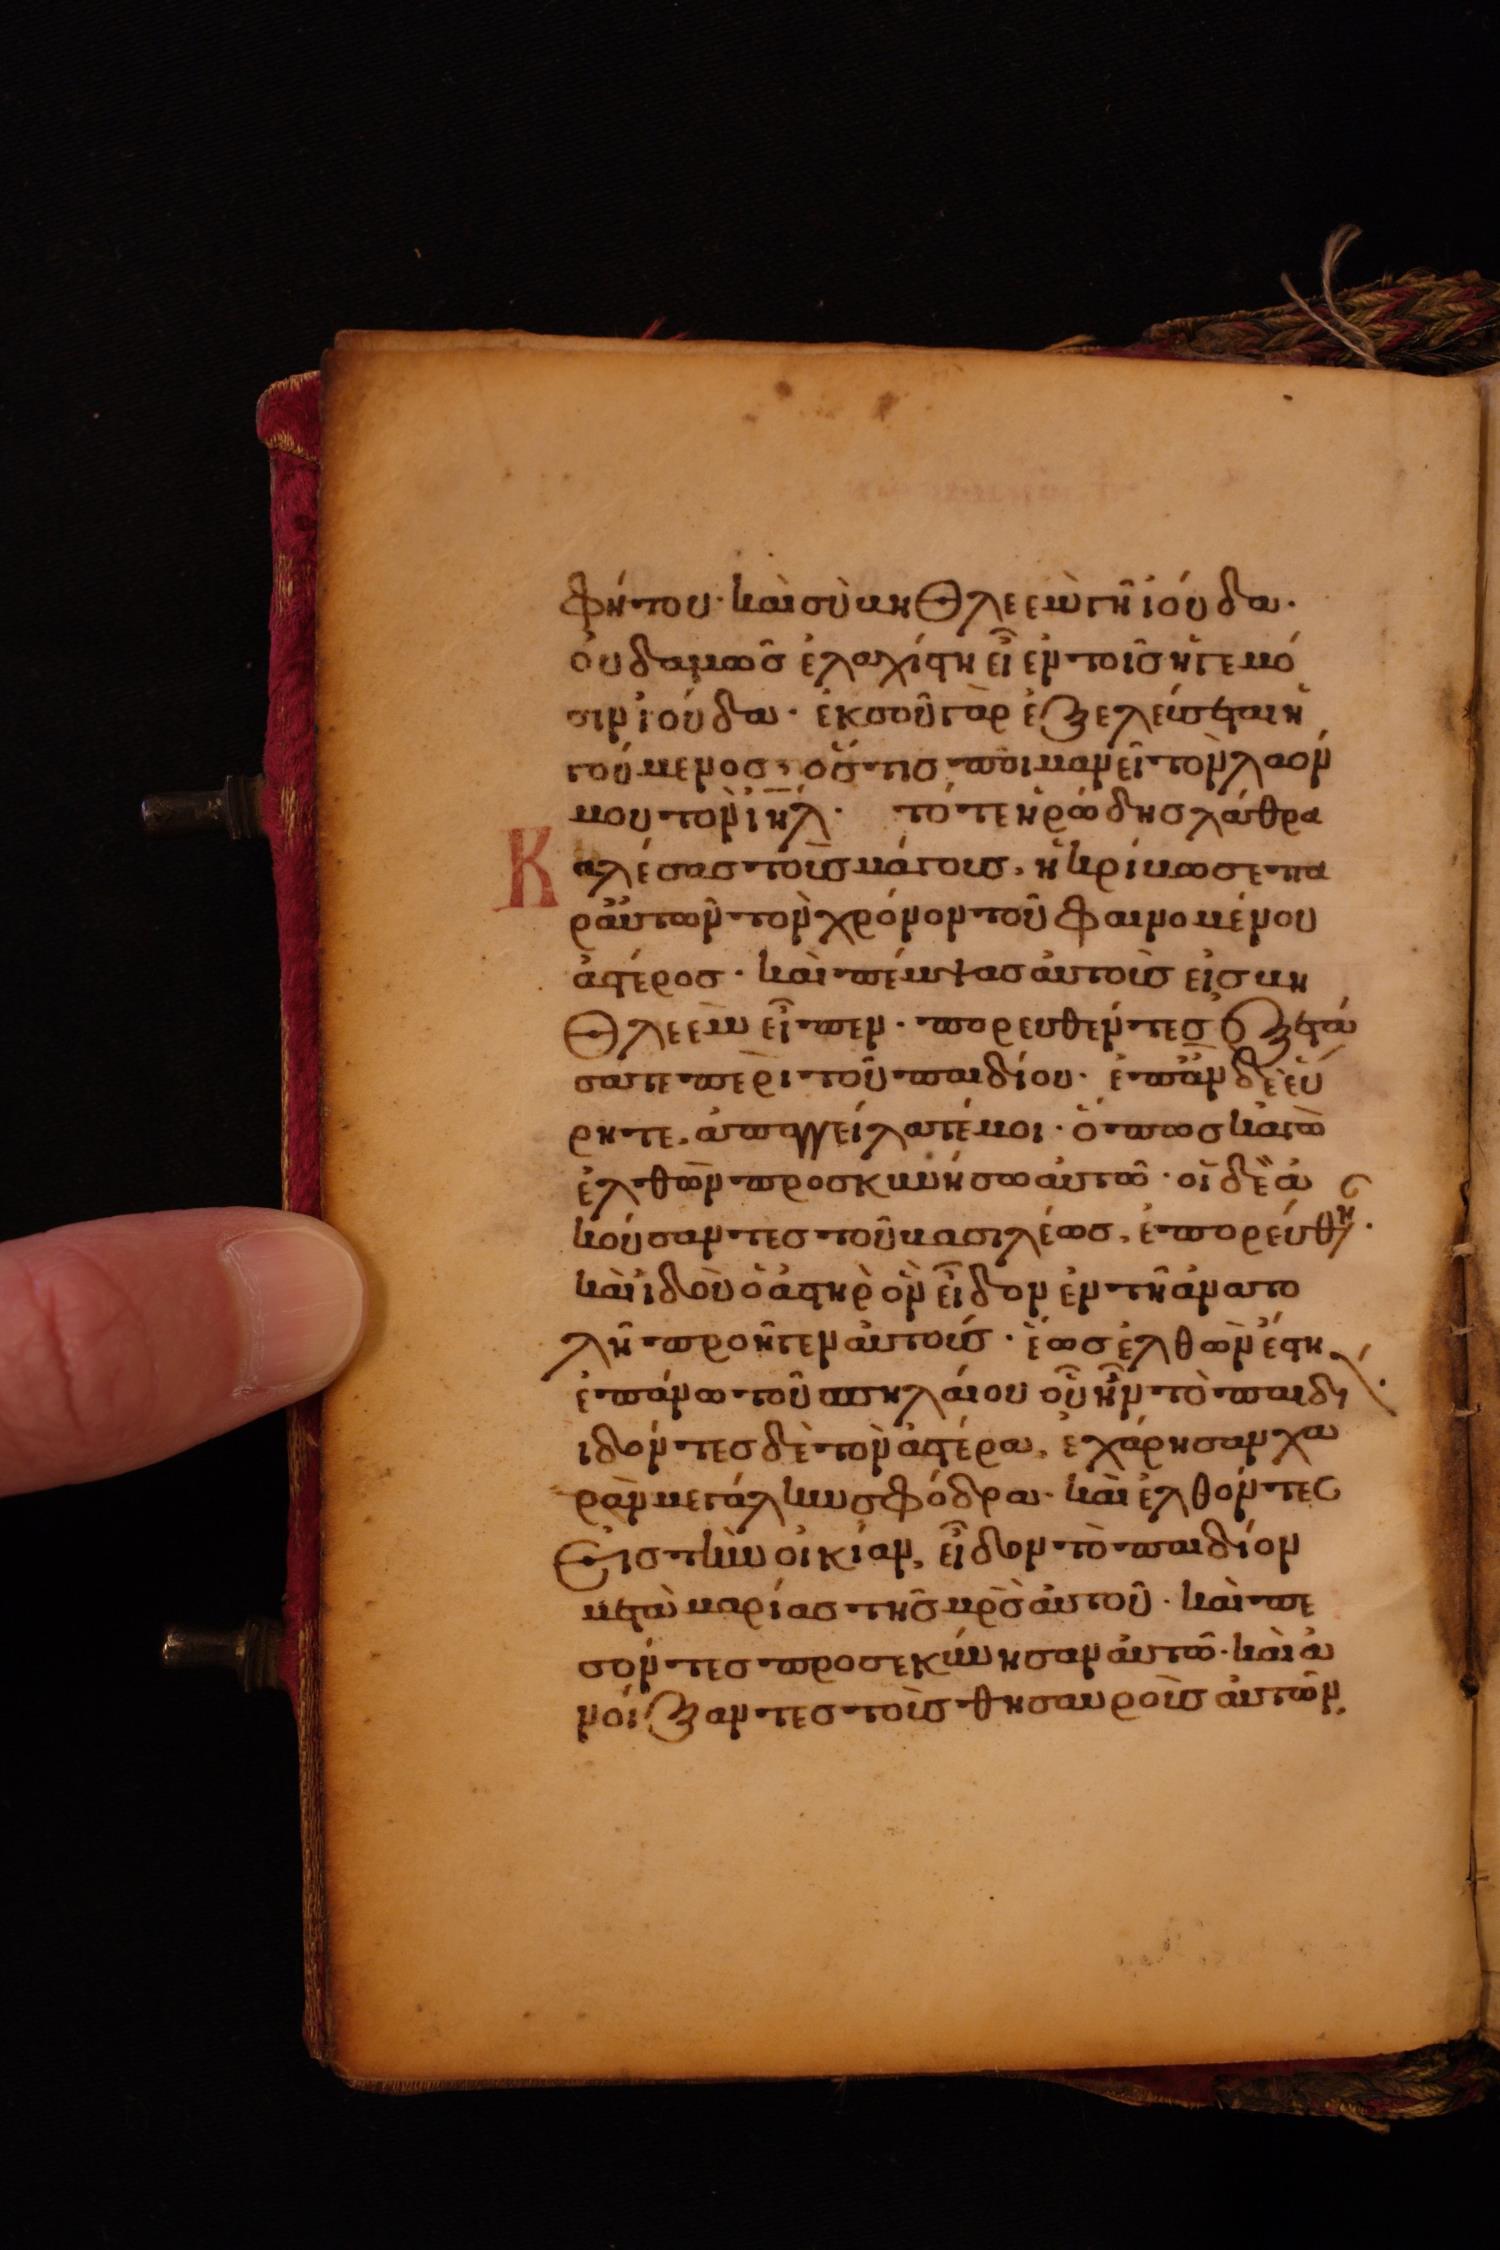 φήτου· καὶ σὺ βηθλεὲμ γῆ ἰούδα·
οὐδαμῶς ἐλαχίστη εἶ ἐν τοῖς ἡγεμό
σιν ἰούδα· ἐκ σοῦ γὰρ ἐξελεύσεται ἡ
γούμενος, ὅστις ποιμανεῖ τὸν λαόν
μου τὸν ἰηλ· τότε ἡρώδης λάθρα
Καλέσας τοὺς μάγους, ἠκρίβωσε πα
ρ αὐτῶν τὸν χρόνον τοῦ φαινομένου
ἀστέρος· καὶ πέμψας αὐτοὺς εἰς βη
θλεὲμ εἶπεν· πορευθέντες ἐξετά
σατε περὶ τοῦ παιδίου· ἐπὰν δὲ εὕ
ρητε, ἀπαγγείλατέ μοι· ὅπως κἀγὼ
ἐλθὼν προσκυνήσω αὐτῶ· οἱ δὲ ἀ
κούσαντες τοῦ βασιλέως, ἐπορεύθη·
καὶ ἰδοὺ ὁ ἀστὴρ ὃν εἶδον ἐν τῆ ἀνατο
λῆ προῆγεν αὐτούς· ἕως ἐλθὼν ἔστη
ἐπάνω τοῦ σπηλαίου οὗ ἦν τὸ παιδι
ἰδόντες δὲ τὸν ἀστέρα, ἐχάρησαν χα
ρὰν μεγάλην σφόδρα· καὶ ἐλθόντες
Εἰς τὴν οἰκίαν, εἶδον τὸ παιδίον
μετὰ μαρίας τῆς μρς αὐτοῦ· καὶ πε
σόντες προσεκύνησαν αὐτῶ· καὶ ἀ
νοίξαντες τοὺς θησαυροὺς αὐτῶν,